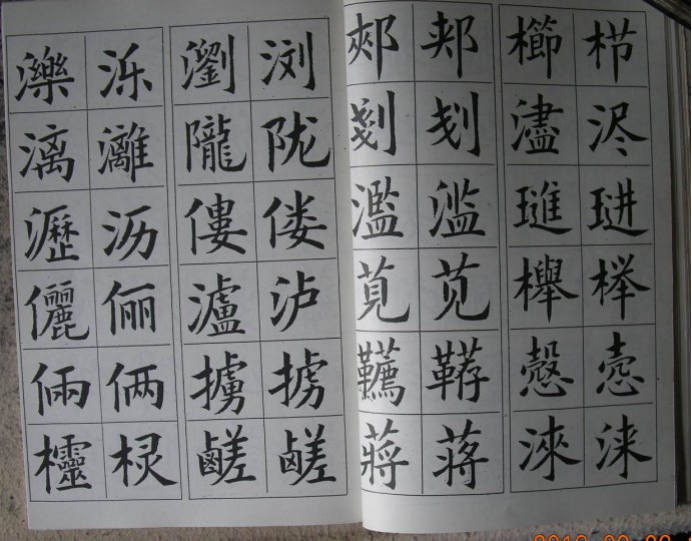 濼 泺 瀏 浏
漓 灕 隴 陇
瀝 沥 僂 偻
儷 俪 瀘 泸
倆 俩 擄 掳
欞 棂 鹺 鹾
郟 郏 櫛 栉
剗 刬 濜 浕
濫 滥 璡 琎
莧 苋 櫸 榉
韉 鞯 慤 悫
蔣 蒋 淶 涞